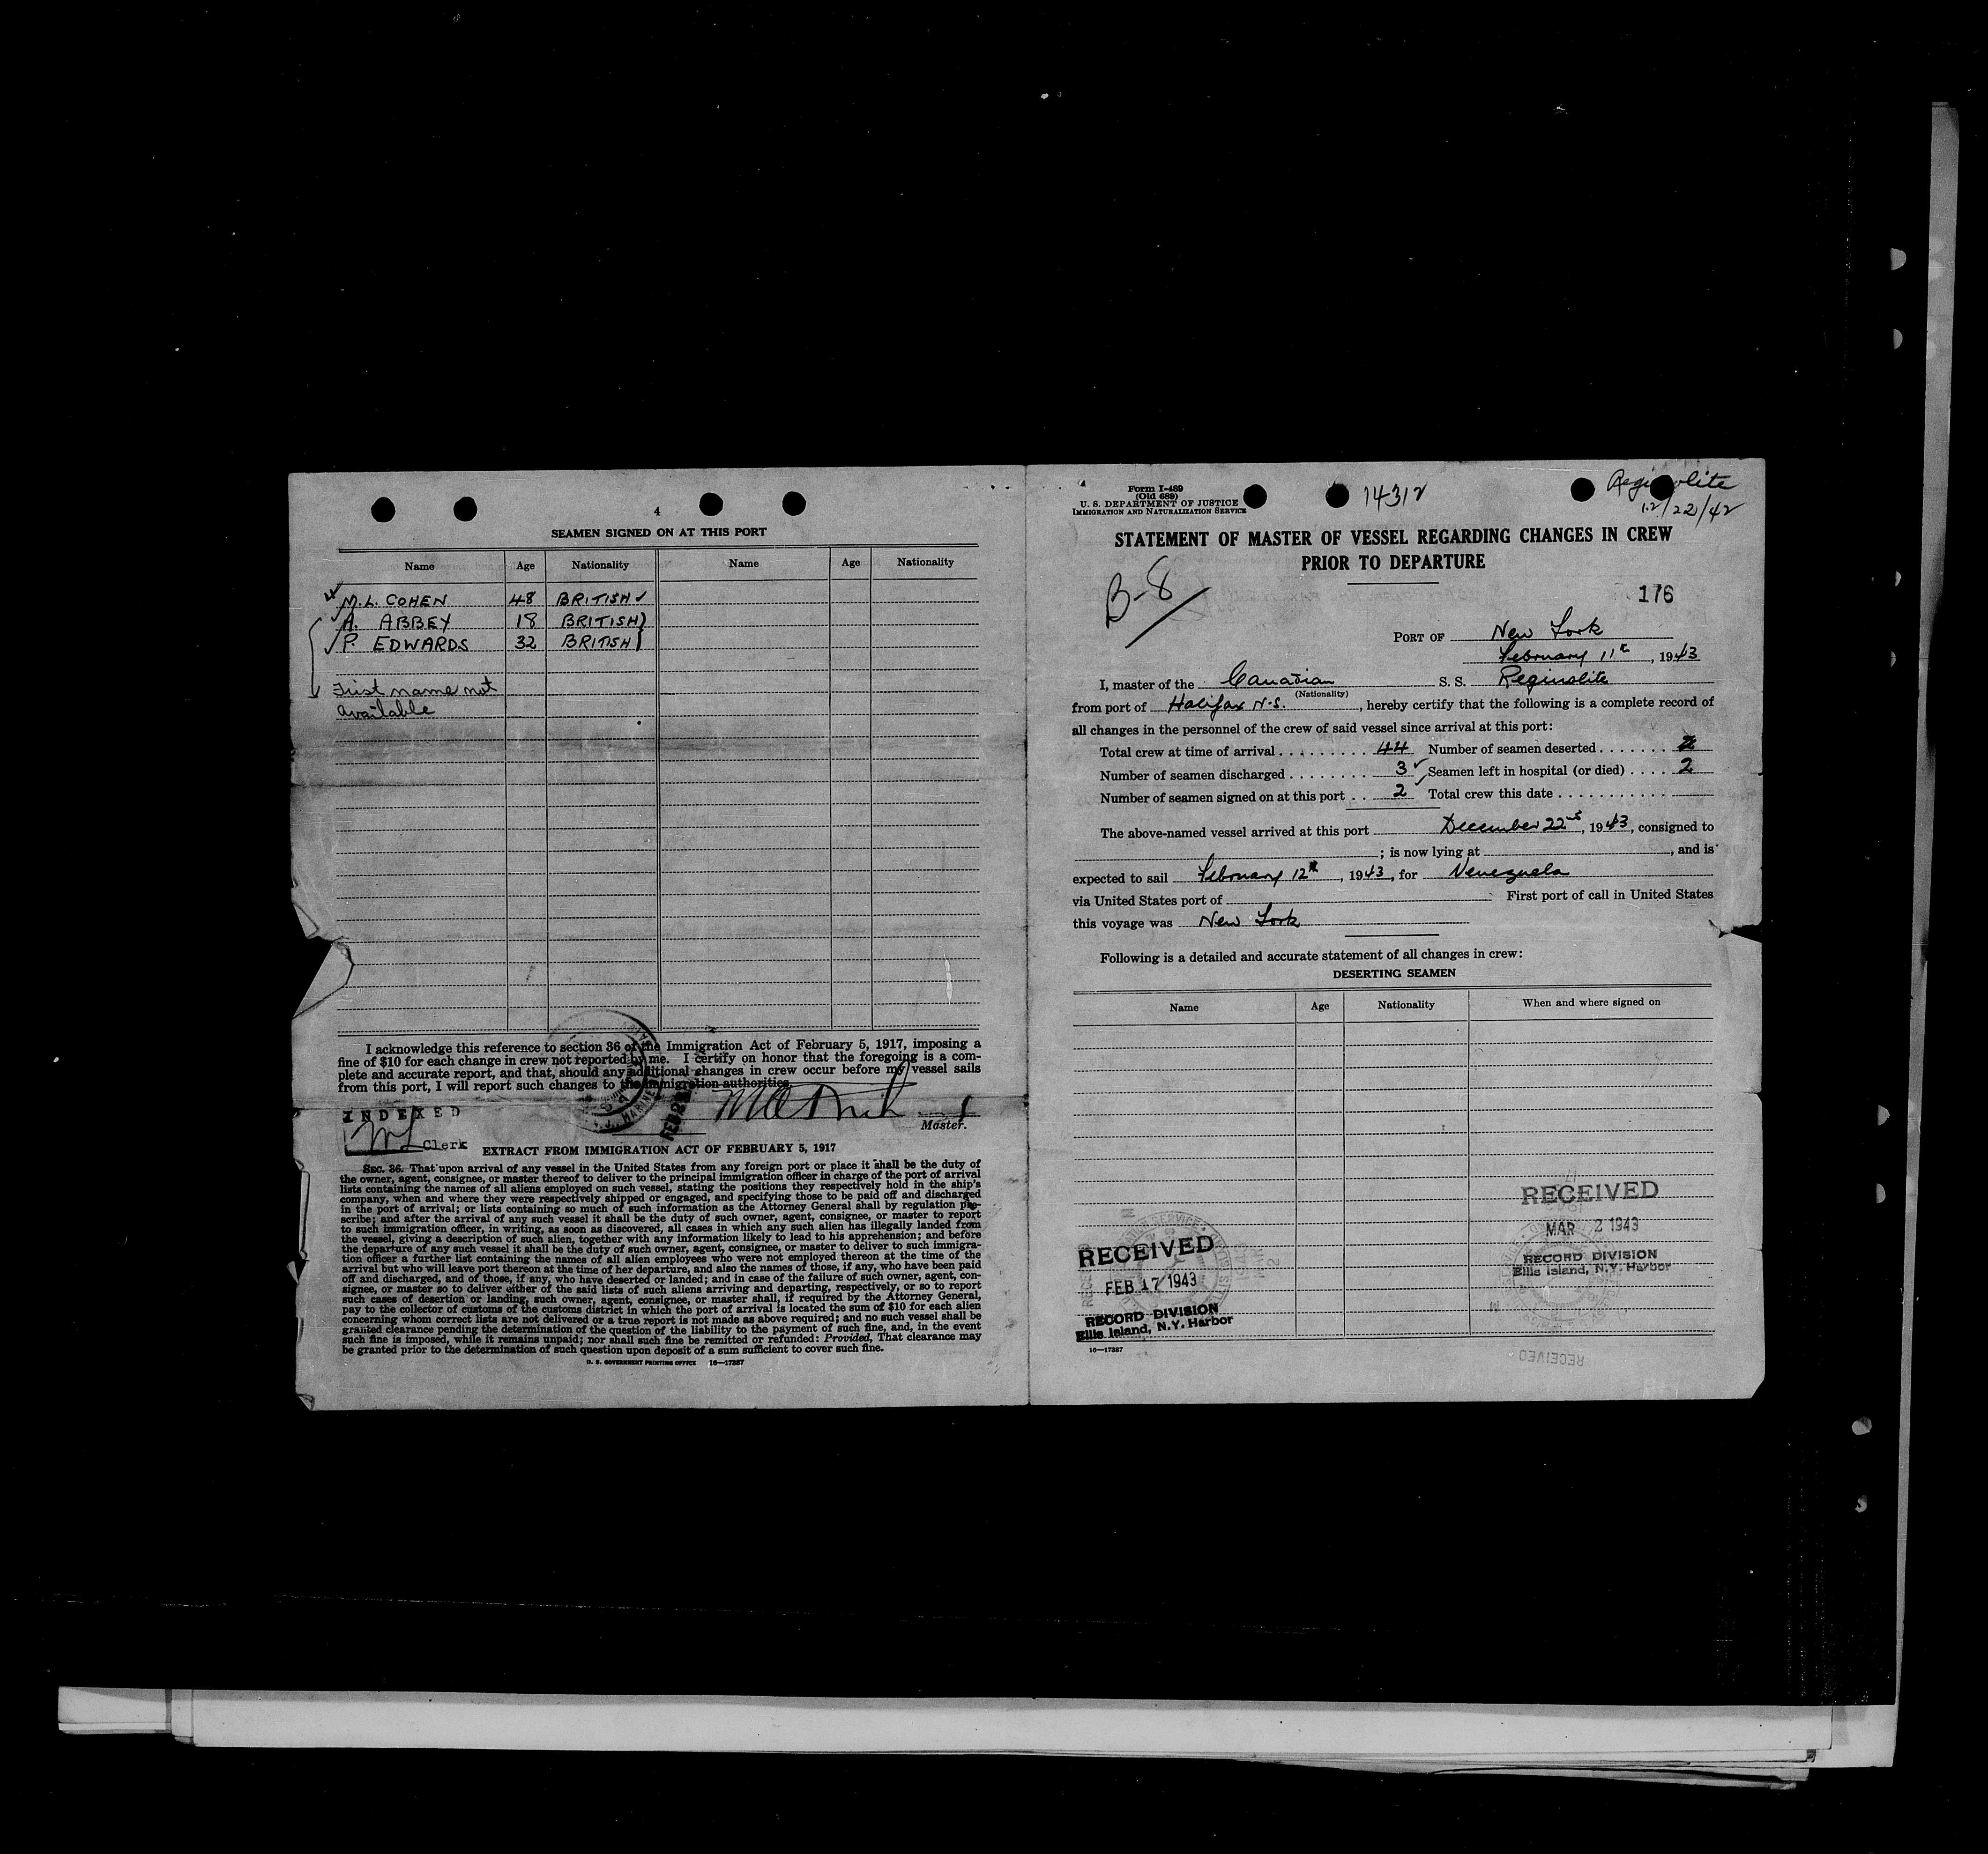 4
SEAMEN SIGNED ON AT THIS PORT
Name Age Nationality Name Age Nationality
M. L. COHEN 48 BRITISH
A. ABBEY 18 BRITISH
P. EDWARDS 32 BRITISH
First name not
available
I acknowledge this reference to section 36 of the Immigration Act of February 5, 1917, imposing a
fine of $10 for each change in crew not reported by me. I certify on honor that the foregoing is a com-
plete and accurate report, and that, should any additional changes in crew occur before my vessel sails
from this port, I will report such changes to the immigration authorities.
INDEXED
Clerk
Master.
EXTRACT FROM IMMIGRATION ACT OF FEBRUARY 5, 1917
SEC. 36. That upon arrival of any vessel in the United States from any foreign port or place it shall be the duty of
the owner, agent, consignee, or master thereof to deliver to the principal immigration officer in charge of the port of arrival
lists containing the names of all aliens employed on such vessel, stating the positions they respectively hold in the ship's
company, when and where they were respectively shipped or engaged, and specifying those to be paid off and discharged
in the port of arrival; or lists containing so much of such information as the Attorney General shall by regulation pre-
scribe; and after the arrival of any such vessel it shall be the duty of such owner, agent, consignee, or master to report
to such immigration officer, in writing, as soon as discovered, all cases in which any such alien has illegally landed from
the vessel, giving a description of such alien, together with any information likely to lead to his apprehension; and before
the departure of any such vessel it shall be the duty of such owner, agent, consignee, or master to deliver to such immigra-
tion officer a further list containing the names of all alien employees who were not employed thereon at the time of the
arrival but who will leave port thereon at the time of her departure, and also the names of those, if any, who have been paid
off and discharged, and of those, if any, who have deserted or landed; and in case of the failure of such owner, agent, con-
signee, or master so to deliver either of the said lists of such aliens arriving and departing, respectively, or so to report
such cases of desertion or landing, such owner, agent, consignee, or master shall, if required by the Attorney General,
pay to the collector of customs of the customs district in which the port of arrival is located the sum of $10 for each alien
concerning whom correct lists are not delivered or a true report is not made as above required; and no such vessel shall be
granted clearance pending the determination of the question of the liability to the payment of such fine, and, in the event
such fine is imposed, while it remains unpaid; nor shall such fine be remitted or refunded: Provided, That clearance may
be granted prior to the determination of such question upon deposit of a sum sufficient to cover such fine.
U. S. GOVERNMENT PRINTING OFFICE 16—17387
Form I-489
(Old 689)
U. S. DEPARTMENT OF JUSTICE
IMMIGRATION AND NATURALIZATION SERVICE
14312
Reginolite
12/22/42
STATEMENT OF MASTER OF VESSEL REGARDING CHANGES IN CREW
PRIOR TO DEPARTURE
B-8
176
PORT OF New York
February 11th, 1943
I, master of the Canadian S. S. Reginolite
(Nationality)
from port of Halifax N.S., hereby certify that the following is a complete record of
all changes in the personnel of the crew of said vessel since arrival at this port:
Total crew at time of arrival . . . . . . . . . 44 Number of seamen deserted . . . . . . . 2
Number of seamen discharged . . . . . . . . 3 Seamen left in hospital (or died) . . . . 2
Number of seamen signed on at this port . . 2 Total crew this date . . . . . . . . . . .
The above-named vessel arrived at this port December 22nd, 1943, consigned to
; is now lying at , and is
expected to sail February 12th, 1943, for Venezuela
via United States port of First port of call in United States
this voyage was New York
Following is a detailed and accurate statement of all changes in crew:
DESERTING SEAMEN
Name Age Nationality When and where signed on
RECEIVED
MAR 2 1943
RECORD DIVISION
Ellis Island, N.Y. Harbor
RECEIVED
FEB 17 1943
RECORD DIVISION
Ellis Island, N.Y. Harbor
16—17387
RECEIVED